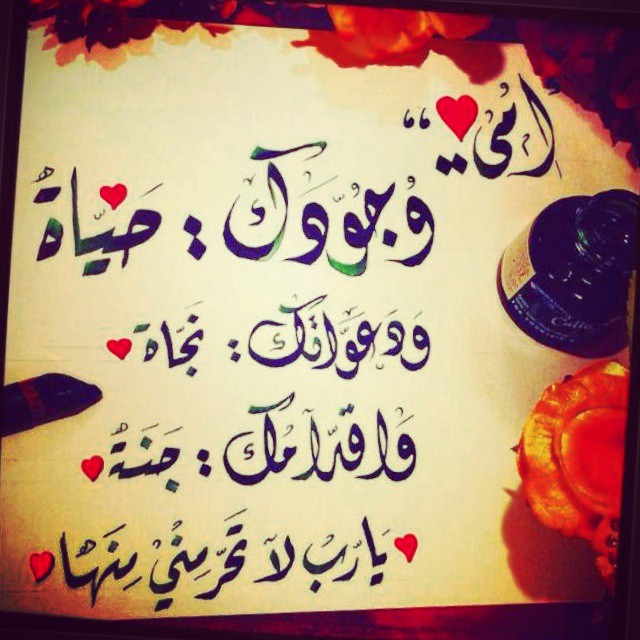 امي ❤ ،،
وُجُوّدَكَ : حَيَّاةٌ
وَدَعَوَّاتَك : نَجَّاة
وَاقدّآمُك : جَنَةٌ
يَارَبْ لآ تَحَرّمِنُيْ مِنَهَا